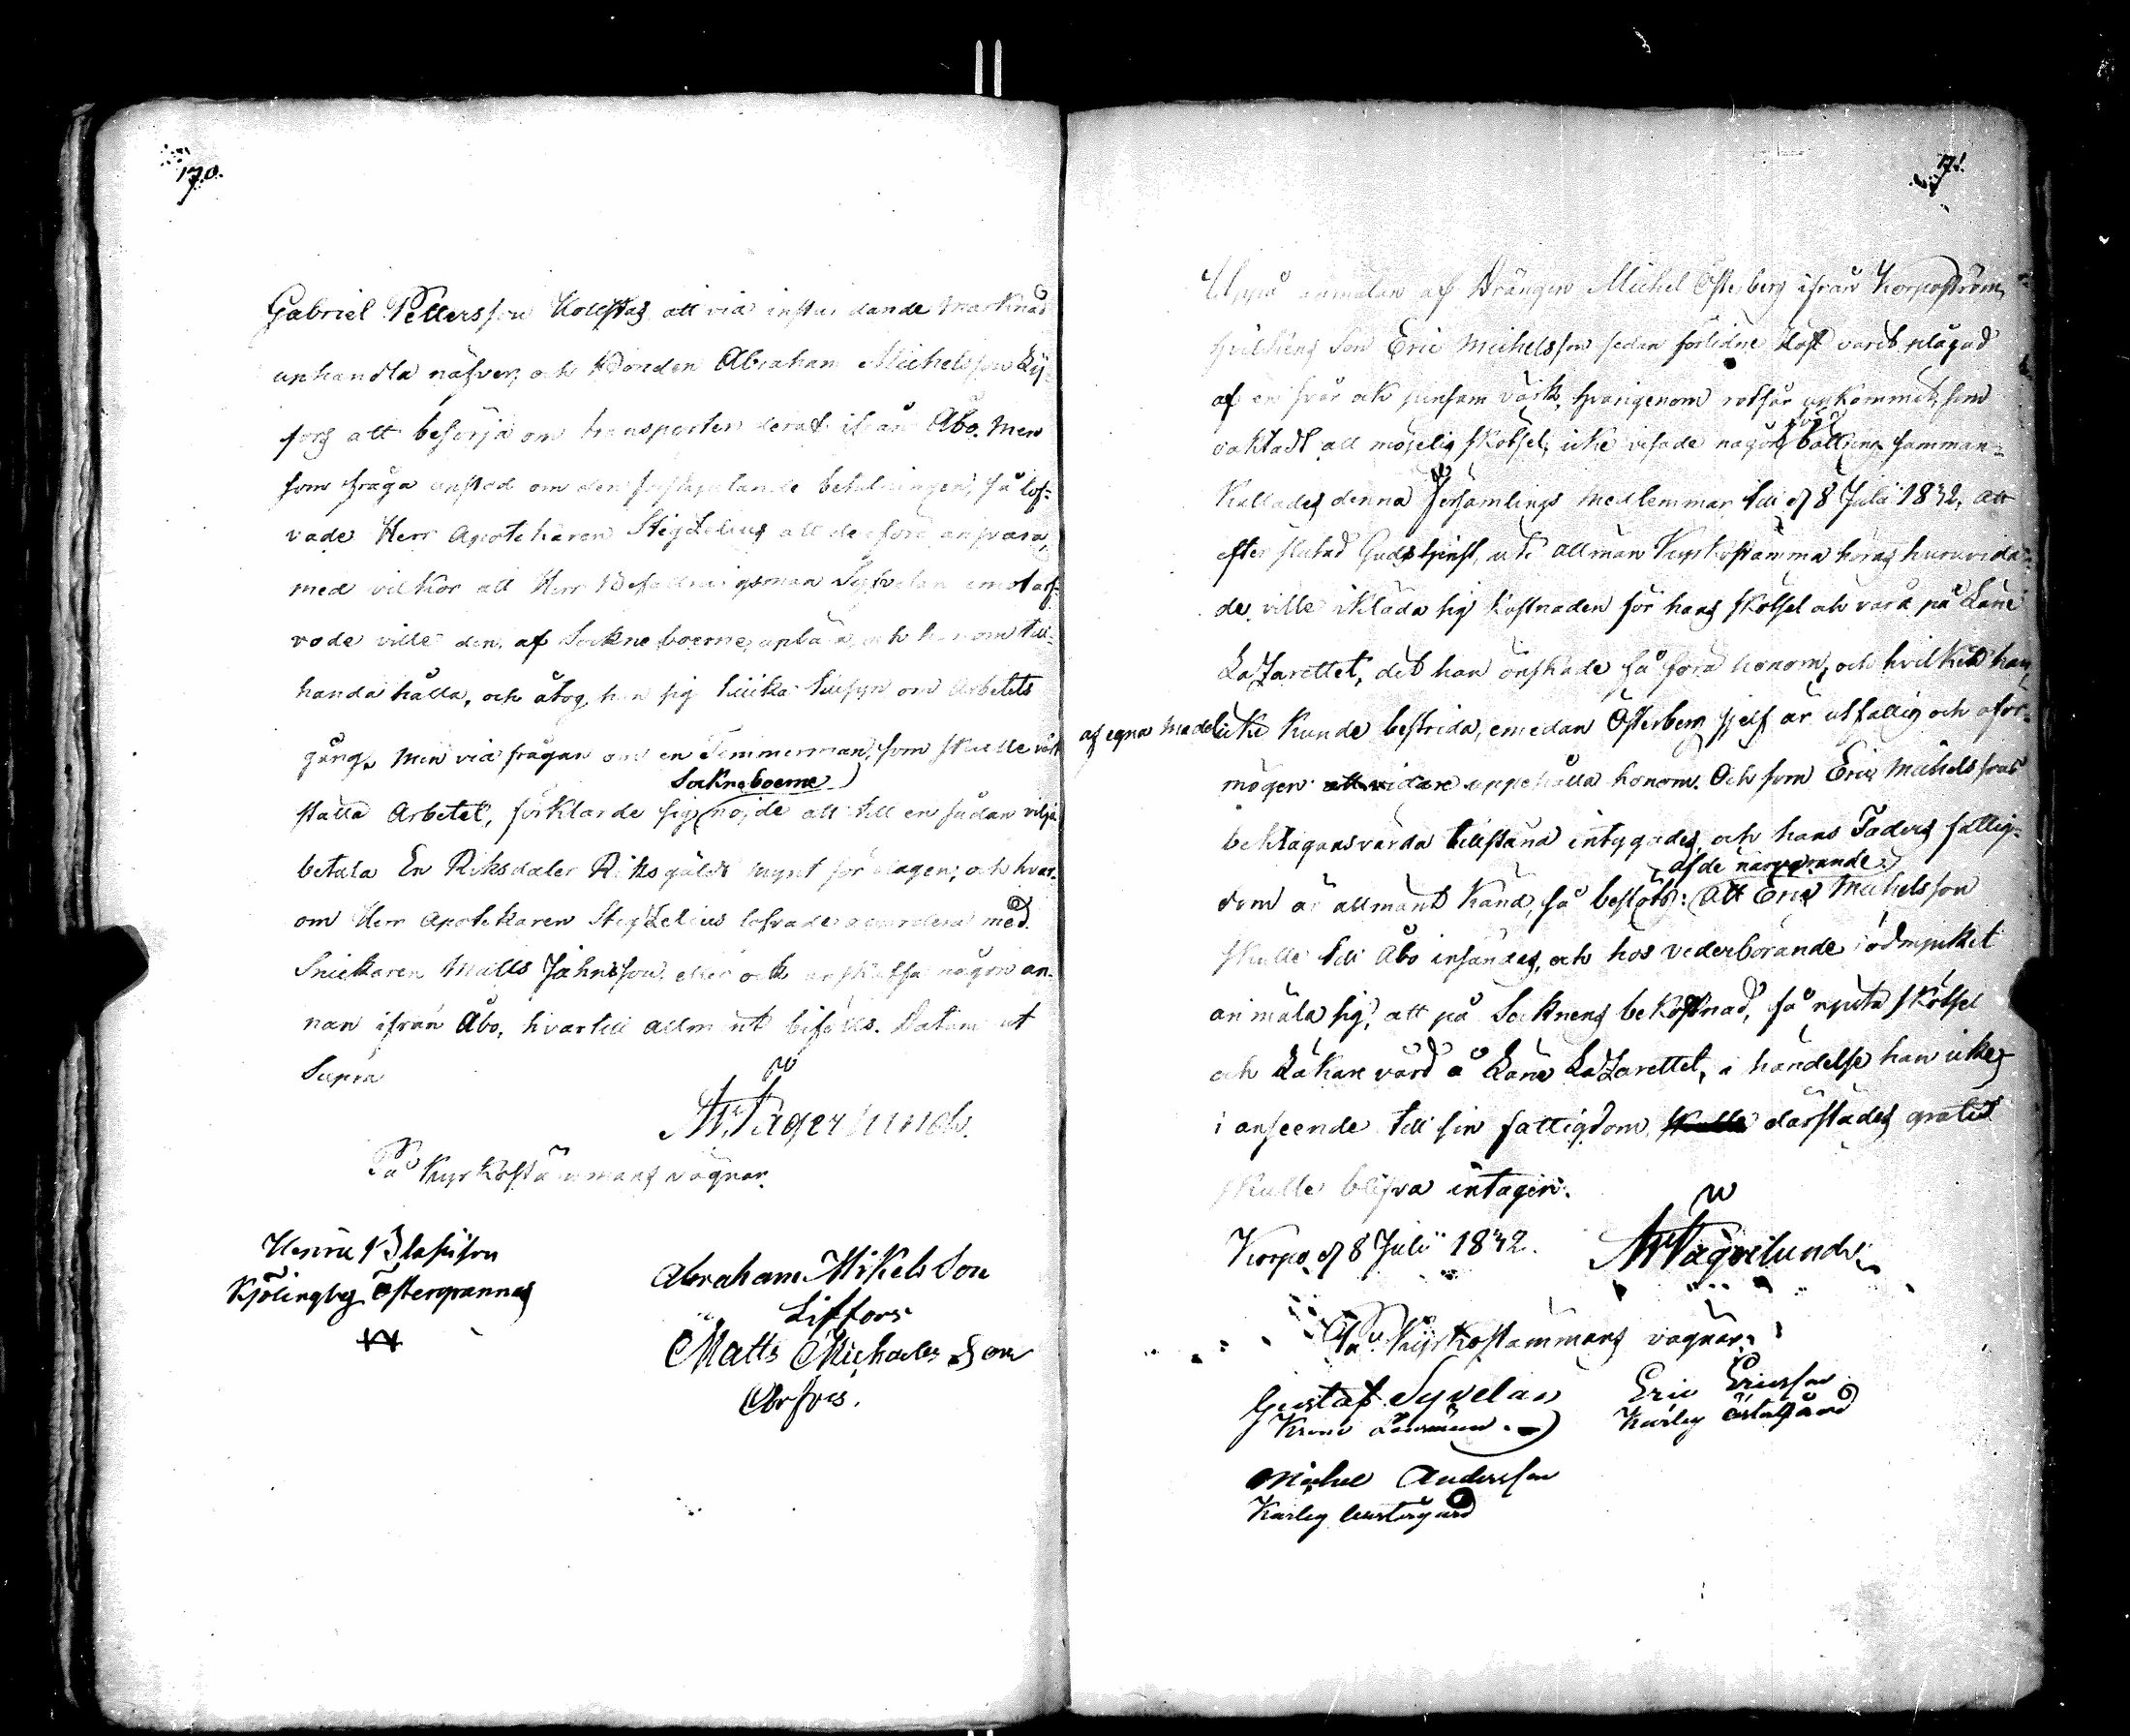 170.
Gabriel Pettersson Kollstas att vid instundande Marknad
uphandla näfver, och Bonden Abraham Michelsson Lÿ-
fors att besörja om transporten deraf ifrån Åbo. Men
som fråga upstod om den förskjutande betalningen, så lof-
vade Herr Apothekaren Stigzelius att derföre ansvara,
med vilkor att Herr Befallningsman Syvelan emot arf-
vode ville den, af Sockneboerne, upbära, och honom till-
handa hålla, och åtog han sig likväl tillsyn om Arbetets
gång. Men vid frågan om en Timmerman, som skulle
Sockneboerne
ställa Arbetet, förklarde sig nöjde att till en sådan vilja
betala En Riksdaler Riksgälds mynt för dagen; och hvar-
om Herr Apothekaren Stigzelius lofvade accordera med
Snickaren Matts Johnsson, eller ock anskaffa någon an-
nan ifrån Åbo, hvartill allmänt bifölls. Datum ut
Supra
Fagerlund.
På Kyrkostämmans vägnar.
Henric
Kjölingby Östergrannas
Abraham Mikels Son
Liffors
Matts Michaels Son
171.
Uppå anmälan af Drängen Michel Österberg ifrån Korpoström,
hvilkens Son Eric Michelsson sedan förlidne Höst varit plågad
af en svår och pinsam värk, hvarigenom rötsår upkommit, som
oaktadt all möjelig skötsel, icke visade någon bättring, samman-
kallades denna Församlings medlemmar till d 8 Julii 1832, att
efter slutad Gudstjenst, uti allmän Kyrkostämma höras huruvida
de ville ikläda sig kostnaden för hans skötsel och vård på Läne
Lazarettet, dit han önskade få föra honom, och hvilket han,
af egna medel icke kunde bestrida, emedan Österberg sjelf är utfattig och oför-
mögen att vidare uppehålla honom. Och som Eric Michelssons
beklagansvärda tillstånd intygades, och hans Faders fattig-
af de närvarande
dom är allmänt känd, så beslöts: Att Eric Michelsson
skulle till Åbo insändas, och hos vederbörande i ödmjukhet
anmäla sig, att på Socknens bekostnad, få njuta skötsel
och Läkare vård å Läne Lazarettet, i händelse han icke
i anseende till sin fattigdom skulle därstädes gratis
skulle blifva intagen.
Korpo d 8 Julii 1832.
Fagerlund.
På Kyrkostämmans vägnar:
Gustaf Syvelan
Krono Länsman.
Eric Ericsson
Kårlax Östergård
Michel Andersson
Kårlax Westergård